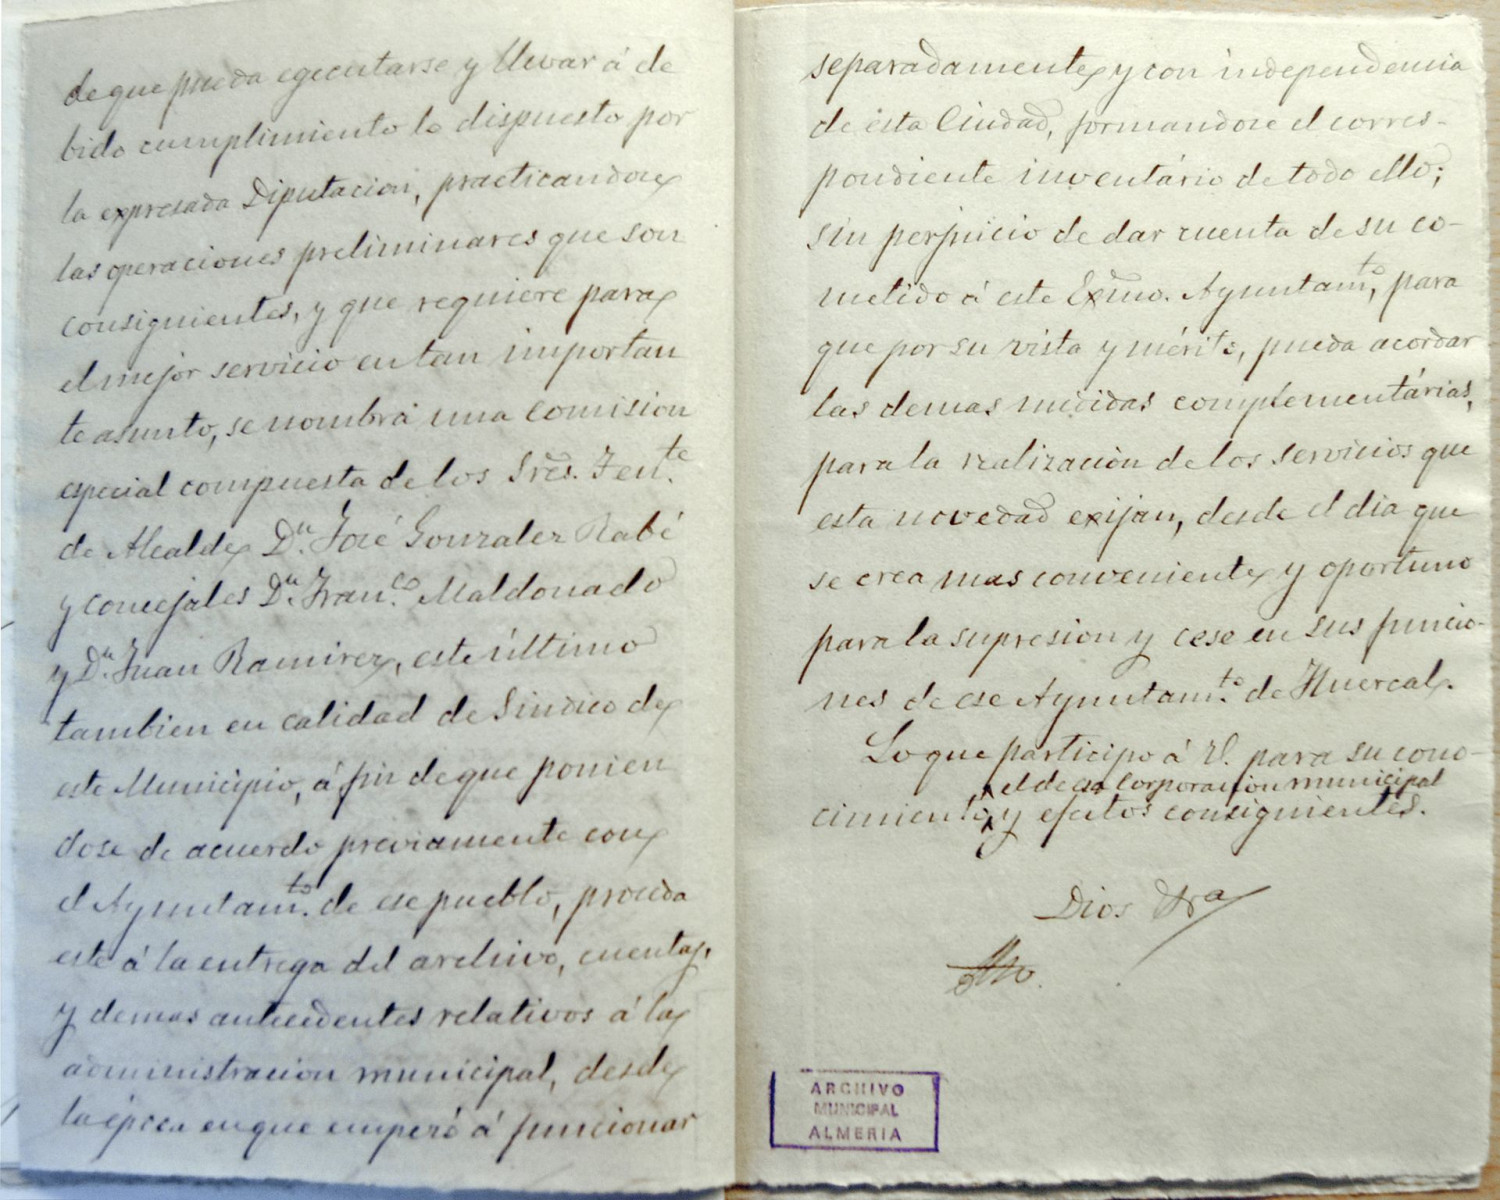 de que pueda egecutarse y llevar á de
bido cumplimiento lo dispuesto por
la expresada Diputacion, practicandose
las operaciones preliminares que son
consiguientes, y que requiere para
el mejor servicio en tan importan
te asunto, se nombrá una Comision
especial compuesta de los Sres. Tente.
de Alcalde Dn. José Gonzalez Rabé
y concejales Dn. Franco. Maldonado
y Dn. Juan Ramirez, este último
tambien en calidad de Sindico de
este Municipio, á fin de que ponien
dose de acuerdo préviamente con
el Ayuntamto. de ese pueblo, proceda
este á la entrega del archivo, cuentas,
y demas antecedentes relativos á la
administracion municipal, desde
la época en que empezó á funcionar
separadamente y con independencia
de esta Ciudad, formandose el corres-
pondiente inventário de todo ello;
sin perjuicio de dar cuenta de su co-
metido á este Exmo. Ayuntamto, para
que por su vista y mérito, pueda acordar
las demas medidas complementárias,
para la realizacion de los servicios que
esta novedad exijan, desde el dia que
se crea mas conveniente y oportuno
para la supresion y cese en sus funcio-
nes de ese Ayuntamto. de Huercal.
Lo que participo á V. para su cono-
el de esa Corporacion municipal
cimiento, y efectos consiguientes.
Dios &ra
ARCHIVO
MUNICIPAL
ALMERIA